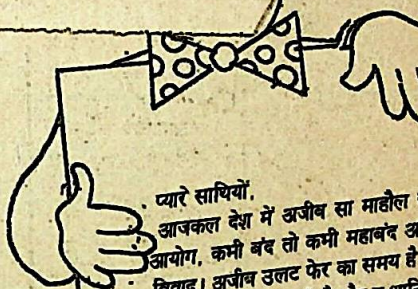 प्यारे साथियों,
आजकल देश में अजीब सा माहौल
आयोग, कभी बंद तो कभी महाबंद
विवाद। अजीब उलट फेर का समय है